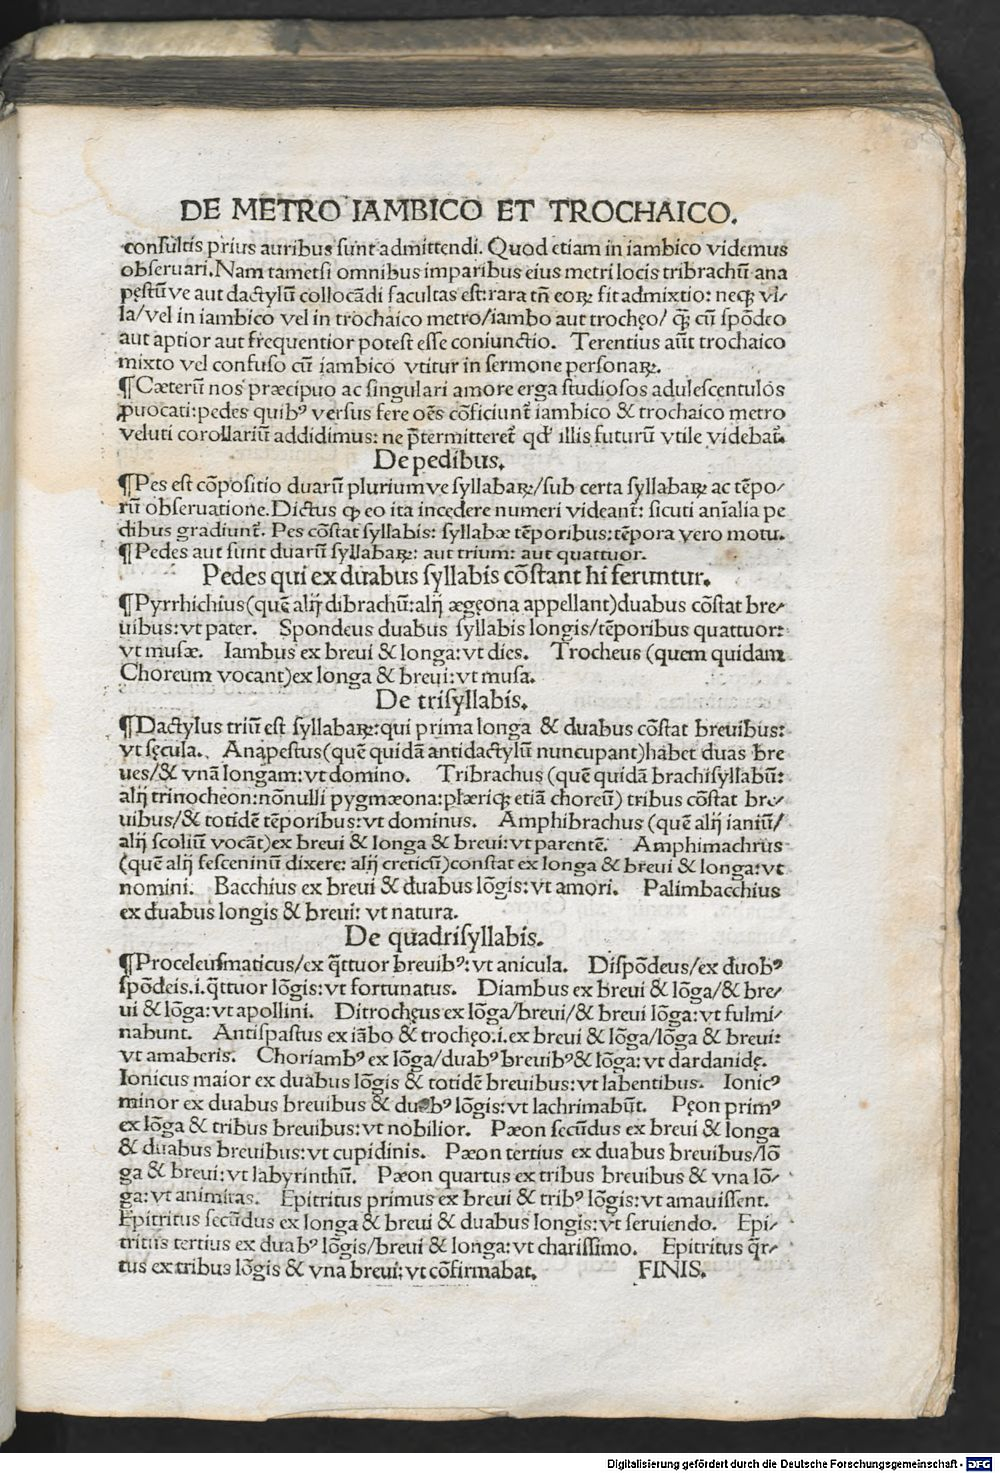 DE METRO IAMBICO ET TROCHAICO.
conſultis prius auribus ſunt admittendi. Quod etiam in iambico videmus
obſeruari. Nam tametſi omnibus imparibus eius metri locis tribrachū ana
pęſtūve aut dactylū collocādi facultas eſt: rara tñ eoꝝ fit admixtio: neqꝫ vl/
la/vel in iambico vel in trochaico metro/iambo aut trochęo/ qꝫ cū ſpōdeo
aut aptior aut frequentior poteſt eſſe coniunctio. Terentius aūt trochaico
mixto vel confuſo cū iambico vtitur in ſermone perſonaꝝ.
¶Cæterū nos præcipuo ac ſingulari amore erga ſtudioſos aduleſcentulos
ꝓuocati: pedes quibꝰ verſus fere oēs cōficiunt̃ iambico & trochaico metro
veluti corollariū addidimus: ne p̄termitteret̃ qđ illis futurū vtile videbat̃.
De pedibus.
¶Pes eſt cōpoſitio duarū pluriumve ſyllabaꝝ/ſub certa ſyllabaꝝ ac tēpo/
rū obſeruatione. Dictus ꝙ eo ita incedere numeri videant̃: ſicuti aīalia pe
dibus gradiunt̃. Pes cōſtat ſyllabis: ſyllabæ tēporibus: tēpora vero motu.
¶Pedes aut ſunt duarū ſyllabaꝝ: aut trium: aut quattuor.
Pedes qui ex duabus ſyllabis cōſtant hi feruntur.
¶Pyrrhichius (quē alij dibrachū: alij ægęona appellant) duabus cōſtat bre/
uibus: vt pater. Spondeus duabus ſyllabis longis/tēporibus quattuor:
vt muſæ. Iambus ex breui & longa: vt dies. Trocheus (quem quidam
Choreum vocant) ex longa & breui: vt muſa.
De triſyllabis.
¶Dactylus triū eſt ſyllabaꝝ: qui prima longa & duabus cōſtat breuibus:
vt ſęcula. Anapeſtus (quē quidā antidactylū nuncupant) habet duas bre
ues/& vnā longam: vt domino. Tribrachus (quē quidā brachiſyllabū:
alij trinocheon: nōnulli pygmæona: plæriqꝫ etiā choreū) tribus cōſtat bre/
uibus/& totidē tēporibus: vt dominus. Amphibrachus (quē alij ianiū/
alij ſcoliū vocāt) ex breui & longa & breui: vt parentē. Amphimachrus
(quē alij feſceninū dixere: alij creticū) conſtat ex longa & breui & longa: vt
nomini. Bacchius ex breui & duabus lōgis: vt amori. Palimbacchius
ex duabus longis & breui: vt natura.
De quadriſyllabis.
¶Proceleuſmaticus/ex q̄ttuor breuibꝰ: vt anicula. Diſpōdeus/ex duobꝰ
ſpōdeis.i.q̄ttuor lōgis: vt fortunatus. Diambus ex breui & lōga/& bre/
ui & lōga: vt apollini. Ditrochęus ex lōga/breui/& breui lōga: vt fulmi/
nabunt. Antiſpaſtus ex iābo & trochęo.i.ex breui & lōga/lōga & breui:
vt amaberis. Choriambꝰ ex lōga/duabꝰ breuibꝰ & lōga: vt dardanidę.
Ionicus maior ex duabus lōgis & totidē breuibus: vt labentibus. Ionicꝰ
minor ex duabus breuibus & duobꝰ lōgis: vt lachrimabūt. Pęon primꝰ
ex lōga & tribus breuibus: vt nobilior. Pæon ſecūdus ex breui & longa
& duabus breuibus: vt cupidinis. Pæon tertius ex duabus breuibus/lō
ga & breui: vt labyrinthū. Pæon quartus ex tribus breuibus & vna lō/
ga: vt animitas. Epitritus primus ex breui & tribꝰ lōgis: vt amauiſſent.
Epitritus ſecūdus ex longa & breui & duabus longis: vt ſeruiendo. Epi/
tritus tertius ex duabꝰ lōgis/breui & longa: vt chariſſimo. Epitritus q̄r/
tus ex tribus lōgis & vna breui: vt cōfirmabat. FINIS.
Digitalisierung gefördert durch die Deutsche Forschungsgemeinschaft - DFG